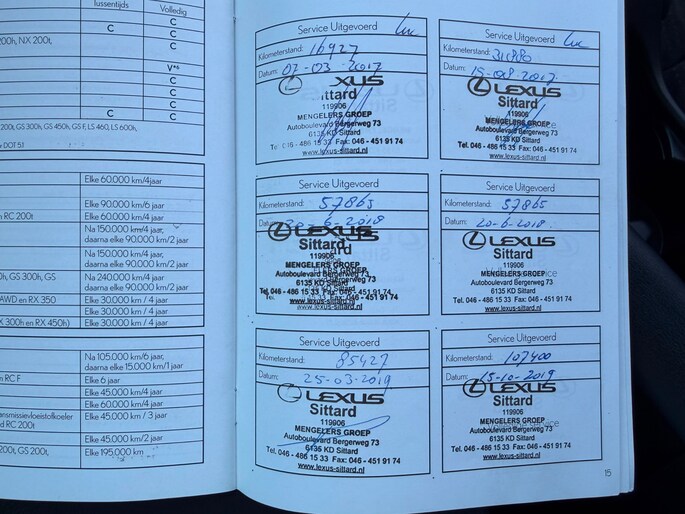 lussentijds
Volledig
C
C
C
200h, NX 200t,
C
V*⁶
C
C
C
C
C
C
200t, GS 300h, GS 450h, GS F, LS 460, LS 600h,
DOT 5.1
Elke 60.000 km/4jaar
Elke 90.000 km/6 jaar
RC 200t
Elke 60.000 km/4 jaar
Na 150.000 km/4 jaar,
daarna elke 90.000 km/2 jaar
Na 150.000 km/4 jaar
daarna elke 90.000 km/2 jaar
GS 300h, GS
Na 240.000 km/4 jaar
daarna elke 90.000 km/2 jaar
AWD en RX 350
Elke 30.000 km / 4 jaar
Elke 30.000 km / 4 jaar
RX 300h en RX 450h)
Elke 30.000 km / 4 jaar
Na 105.000 km/6 jaar,
daarna elke 15.000 km/1 jaar
RC F
Elke 6 jaar
Elke 45.000 km/4 jaar
Elke 60.000 km/4 jaar
Elke 45.000 km / 3 jaar
RC 200t)
Elke 45.000 km/2 jaar
200t, GS 200t,
Elke 195.000 km
Service Uitgevoerd
Kilometerstand: 16927
Datum: 07-03-2017
LEXUS
Sittard
119906
MENGELERS GROEP
Autoboulevard Bergerweg 73
6135 KD Sittard
Tel. 046 - 486 15 33 Fax: 046 - 451 91 74
www.lexus-sittard.nl
Service Uitgevoerd
Kilometerstand:
Datum: 15-08-2017
LEXUS
Sittard
119906
MENGELERS GROEP
Autoboulevard Bergerweg 73
6135 KD Sittard
Tel. 046 - 486 15 33 Fax: 046 - 451 91 74
www.lexus-sittard.nl
Service Uitgevoerd
Kilometerstand: 57865
Datum: 20-6-2018
LEXUS
Sittard
119906
MENGELERS GROEP
Autoboulevard Bergerweg 73
6135 KD Sittard
Tel. 046 - 486 15 33 Fax: 046 - 451 91 74
www.lexus-sittard.nl
Service Uitgevoerd
Kilometerstand: 57865
Datum: 20-6-2018
LEXUS
Sittard
119906
MENGELERS GROEP
Autoboulevard Bergerweg 73
6135 KD Sittard
Tel. 046 - 486 15 33 Fax: 046 - 451 91 74
www.lexus-sittard.nl
Service Uitgevoerd
Kilometerstand: 85427
Datum: 25-03-2019
LEXUS
Sittard
119906
MENGELERS GROEP
Autoboulevard Bergerweg 73
6135 KD Sittard
Tel. 046 - 486 15 33 Fax: 046 - 451 91 74
www.lexus-sittard.nl
Service Uitgevoerd
Kilometerstand: 107400
Datum: 15-10-2019
LEXUS
Sittard
119906
MENGELERS GROEP
Autoboulevard Bergerweg 73
6135 KD Sittard
Tel. 046 - 486 15 33 Fax: 046 - 451 91 74
www.lexus-sittard.nl
15